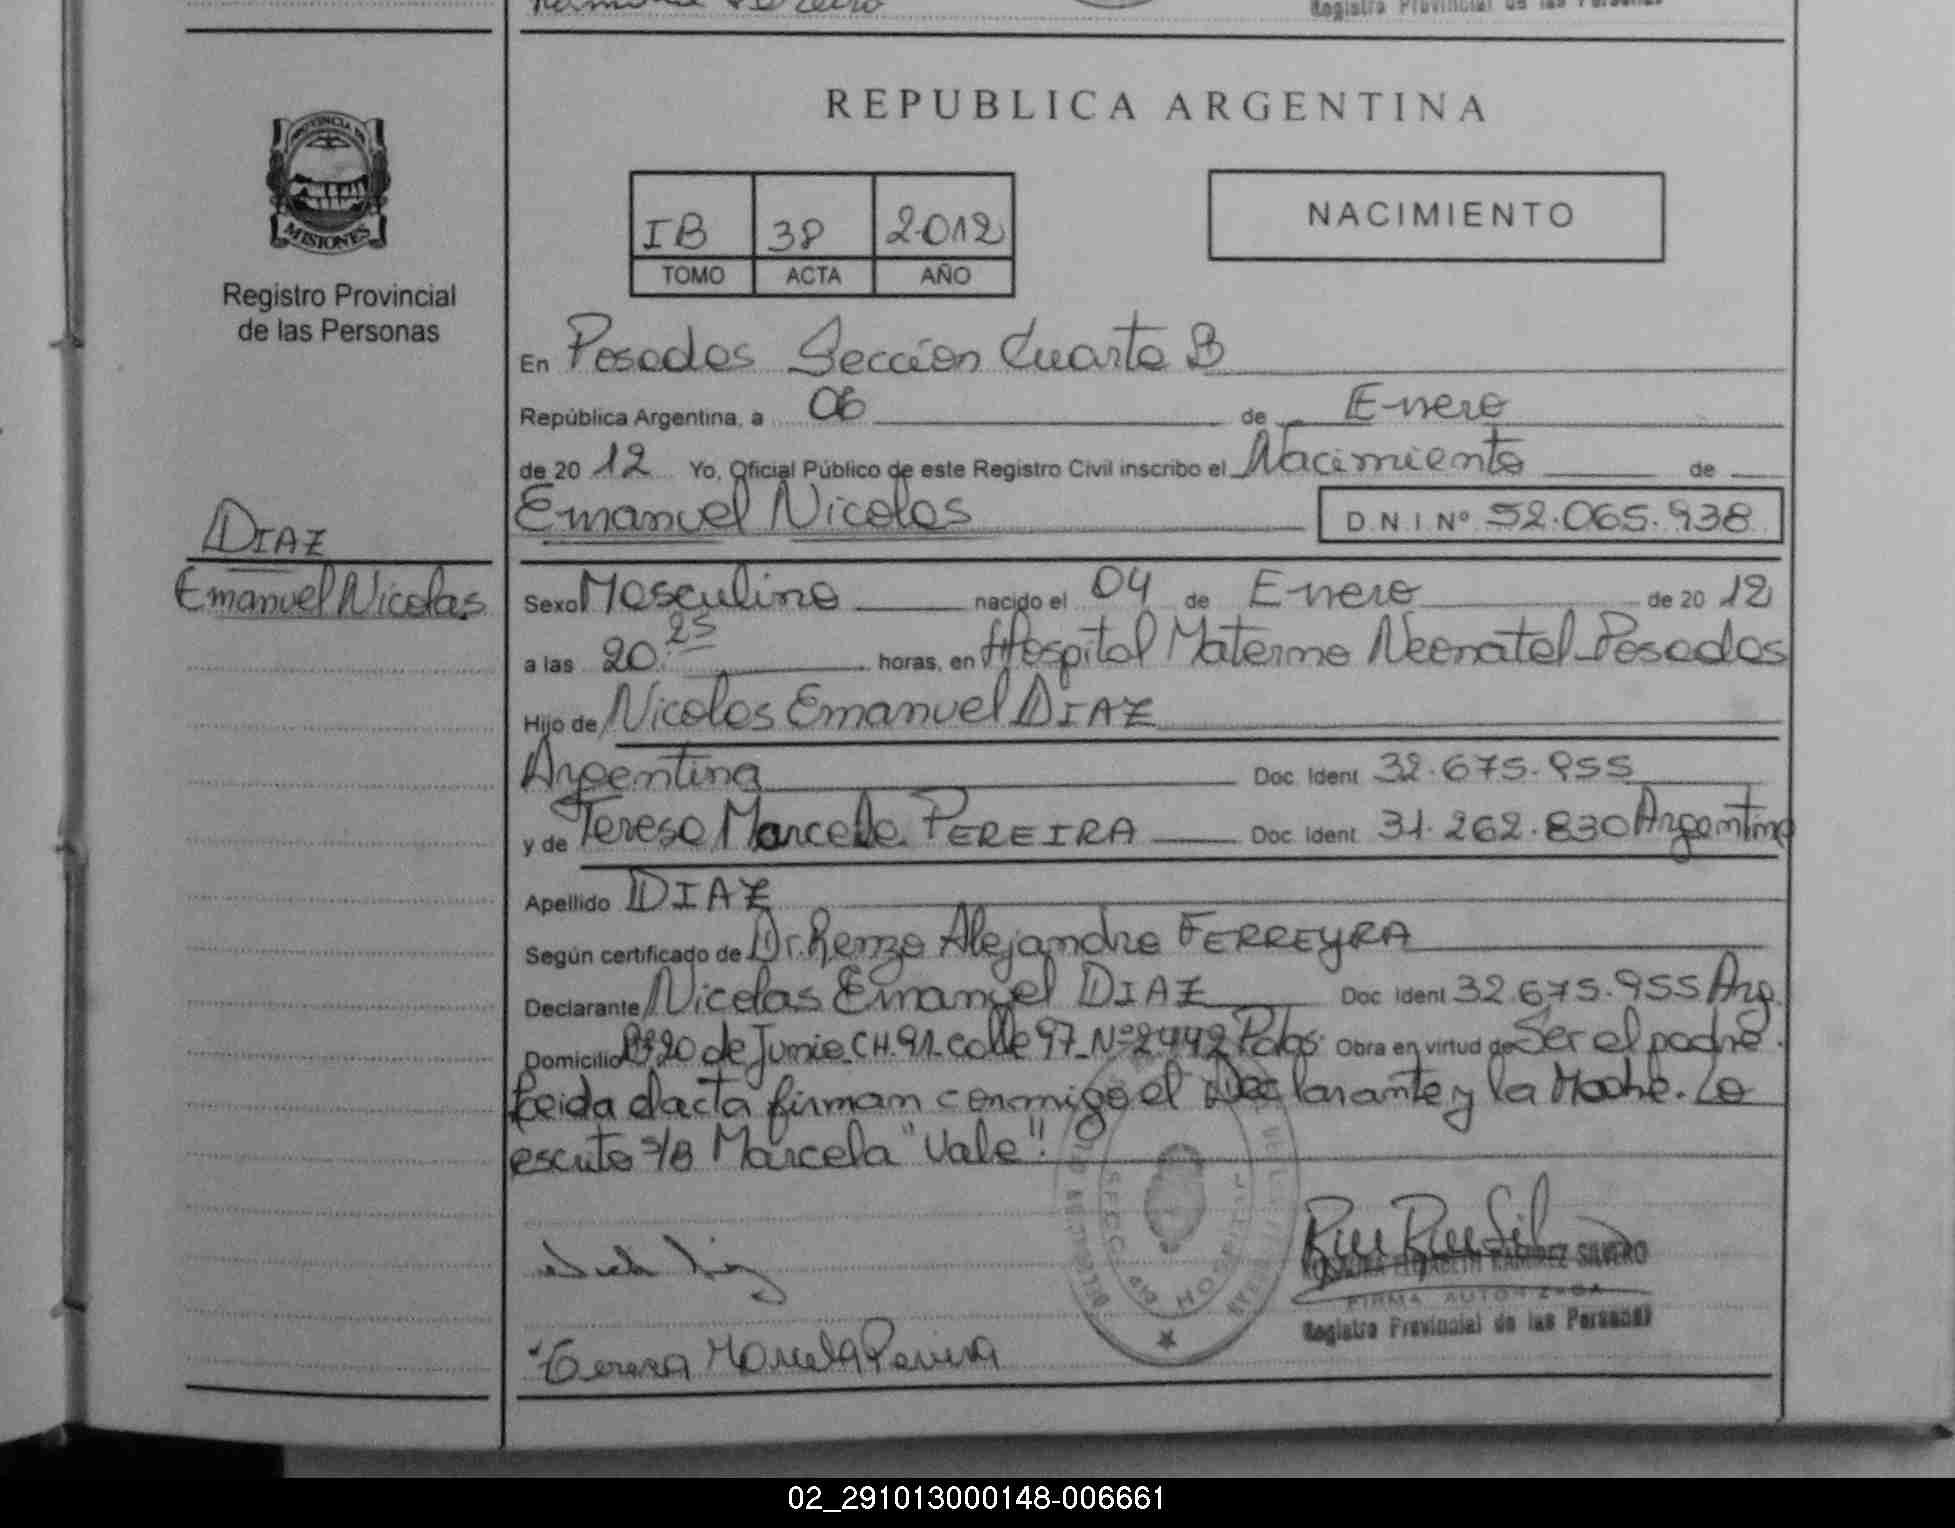 Registro Provincial de las Personas
REPUBLICA ARGENTINA
PROVINCIA DE
MISIONES
Registro Provincial
de las Personas
IB 38 2012
TOMO ACTA AÑO
NACIMIENTO
En Posadas Sección Cuarta B
República Argentina, a 06 de Enero
de 2012 Yo, Oficial Público de este Registro Civil inscribo el Nacimiento de
Emanuel Nicolas D.N.I Nº 52.065.938
DIAZ
Emanuel Nicolas
Sexo Masculino nacido el 04 de Enero de 2012
a las 20.25 horas, en Hospital Materno Neonatal-Posadas
Hijo de Nicolas Emanuel DIAZ
Argentina Doc. Ident 32.675.955
y de Teresa Marcela PEREIRA Doc. Ident. 31.262.830 Argentina
Apellido DIAZ
Según certificado de Dr. Renzo Alejandro FERREYRA
Declarante Nicolas Emanuel DIAZ Doc. Ident 32.675.955 Arg.
Domicilio Bº 20 de Junio CH.91. calle 97_Nº2442 Pdas. Obra en virtud de Ser el padre.
Leida el acta firman conmigo el Declarante y la Madre. Lo
escrito s/B Marcela "Vale".
Teresa Marcela Pereira
ROSANA ELIZABETH RAMIREZ SILVERO
FIRMA AUTORIZADA
Registro Provincial de las Personas
02_291013000148-006661